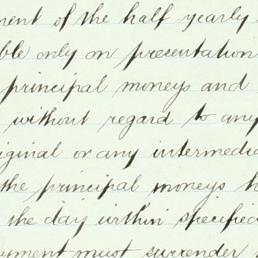 ment of the half yearly
ble only on presentation
principal moneys and
without regard to any
iginal or any intermedia
the principal moneys h
the day within specified
yment must surrender